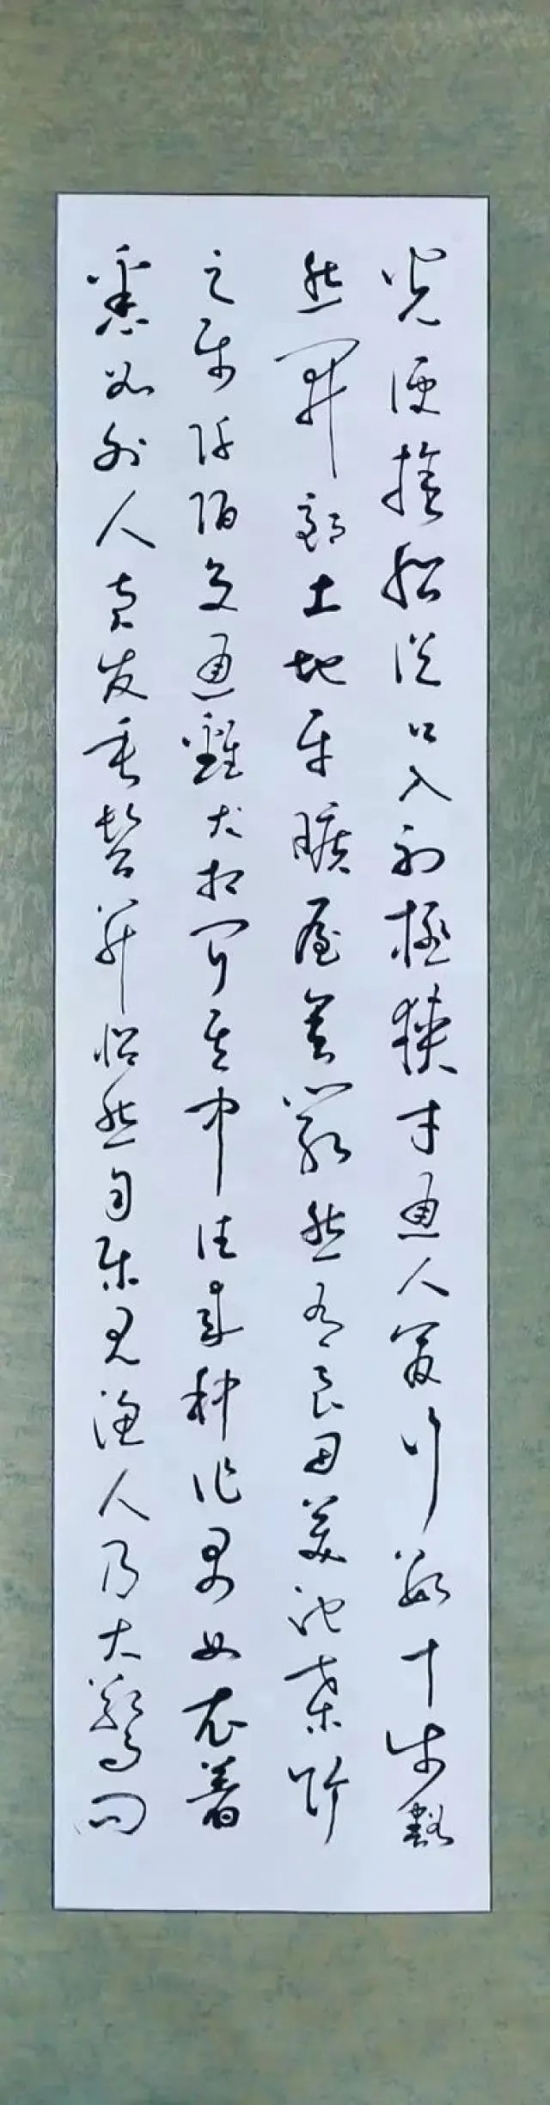 光便捨船從口入初極狹才通人復行數十步豁
然開朗土地平曠屋舍嚴然有良田美池桑竹
之屬阡陌交通雞犬相聞其中往來種作男女衣著
悉如外人黃髮垂髫並怡然自樂見漁人乃大驚問